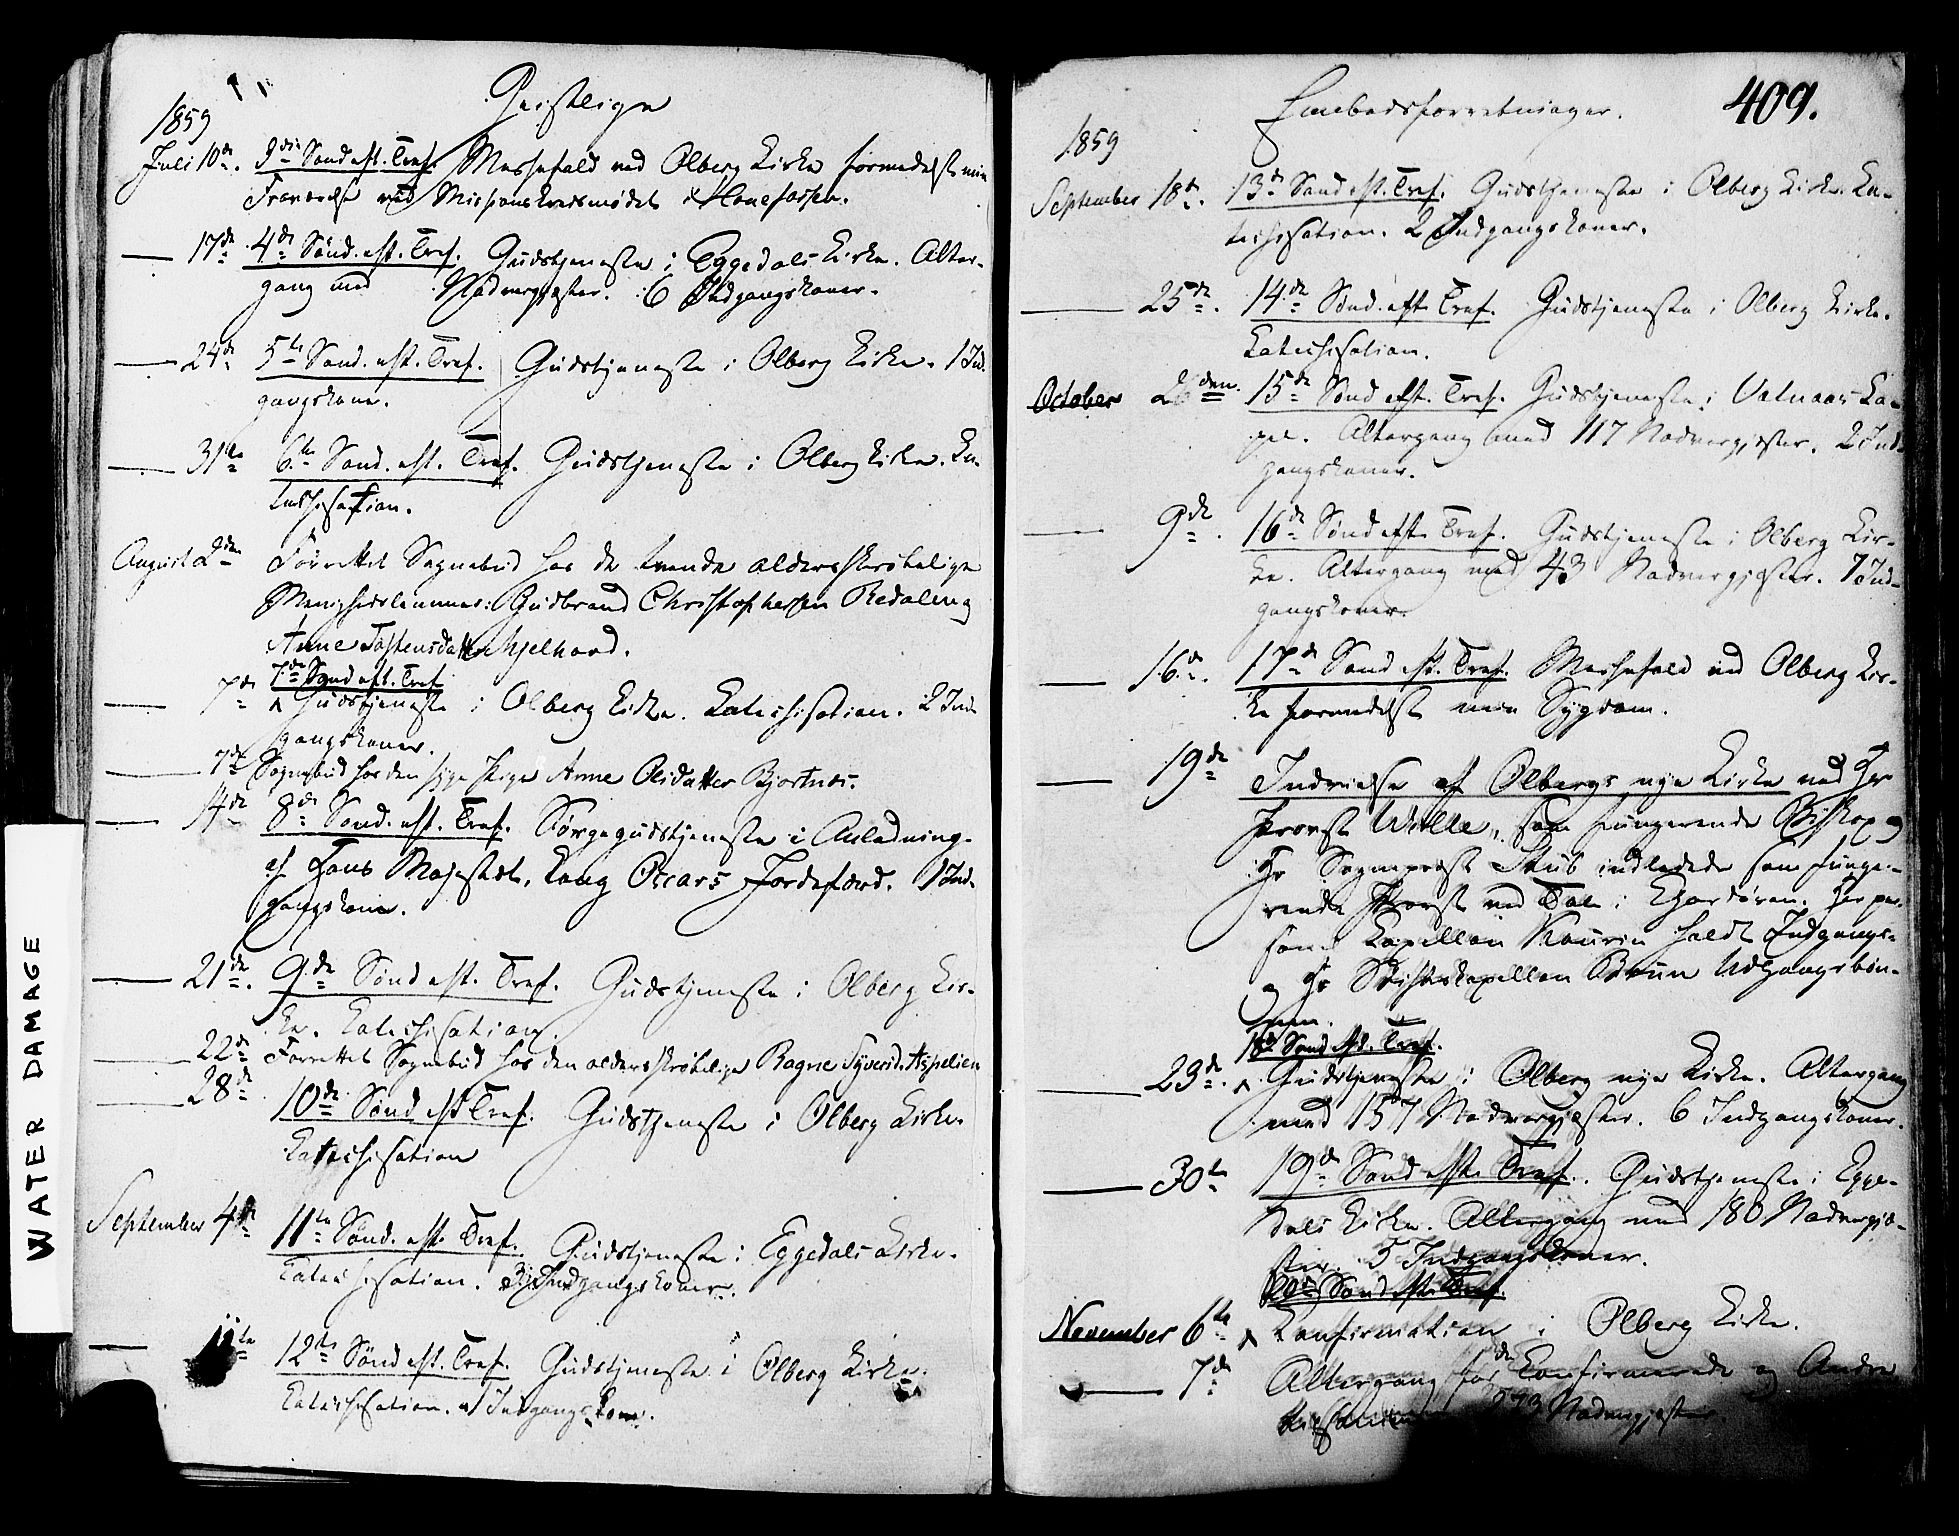 Geistlige
1859
Juli 10de. 3die Sønd. eft. Tref. Messefald ved Olberg Kirke formedelst min
Fraværelse ved Missionskredsmødet i Hønefossen.
— 17de 4de Sønd. eft. Tref. Gudstjeneste i Eggedals Kirke. Alter-
gang med Nadvergjæster. 6 Indgangskoner.
— 24de 5te Sønd. eft. Tref. Gudstjeneste i Olberg Kirke. 1 Ind-
gangskone.
— 31te 6te Sønd. eft. Tref. Gudstjeneste i Olberg Kirke. Ka-
techisation.
August 2den Forrettet Sognebud hos de tvende aldersskrøbelige
Menighedslemmer: Gudbrand Christophersen Redalen og
Anne Tostensdatter Mjelhovd.
7de Sønd. eft. Tref.
— 7de Gudstjeneste i Olberg Kirke. Katechisation. 2 Ind-
gangskoner.
— 7de Sognebud hos den syge Pige Anne Olsdatter Bjortnes.
— 14de 8de Sønd. eft. Tref. Sørgegudstjeneste i Anledning
af Hans Majestæt, Kong Oscars Jordefærd. 1 Ind-
gangskone.
— 21de. 9de Sønd. eft. Tref. Gudstjeneste i Olberg Kir-
ke. Katechisation.
— 22de Forrettet Sognebud hos den aldersskrøbelige Ragne Syversd. Aspelien
— 28de 10de Sønd. eft. Tref. Gudstjeneste i Olberg Kirke.
Katechisation
September 4de 11te Sønd. eft. Tref. Gudstjeneste i Eggedals Kirke.
Katechisation. 3 Indgangskoner.
— 11te 12te Sønd. eft. Tref. Gudstjeneste i Olberg Kirke.
Katechisation. 1 Indgangskone.
WATER DAMAGE
Embedsforretninger. 409.
1859
September 18de. 13de Sønd. eft. Tref. Gudstjeneste i Olberg Kirke. Ka-
techisation. 2 Indgangskoner.
— 25de. 14de Sønd. eft. Tref. Gudstjeneste i Olberg Kirke.
Katechisation.
October 2den. 15de Sønd. eft. Tref. Gudstjeneste i Vatnaas Ka-
pel. Altergang med 117 Nadvergjæster. 2 Ind-
gangskoner.
— 9de. 16de Sønd. eft. Tref. Gudstjeneste i Olberg Kir-
ke. Altergang med 43 Nadvergjæster. 7 Ind-
gangskoner.
— 16de. 17de Sønd. eft. Tref. Messefald ved Olberg Kir-
ke formedelst min Sygdom.
— 19de Indvielse af Olbergs nye Kirke ved Hr
Provst Wille, som fungerende Biskop og
Hr Sogneprest Stub indledede som funge-
rende Provst ved Tale i Chordøren. Hr per-
sonel Kapellan Kaurin holdt Indgangs-
og Hr Stiftskapellan Bruun Udgangsbøn-
nen.
18de Sønd. eft. Tref.
— 23de. Gudstjeneste i Olberg nye Kirke. Altergang
med 157 Nadvergjæster. 6 Indgangskoner.
— 30te 19de Sønd. eft. Tref. Gudstjeneste i Egge-
dals Kirke. Altergang med 180 Nadvergjæ-
ster. 5 Indgangskoner.
20de Sønd. eft. Tref.
November 6te Konfirmation i Olberg Kirke.
— 7de Altergang for de Konfirmerede og Andre
273 Nadvergjæster